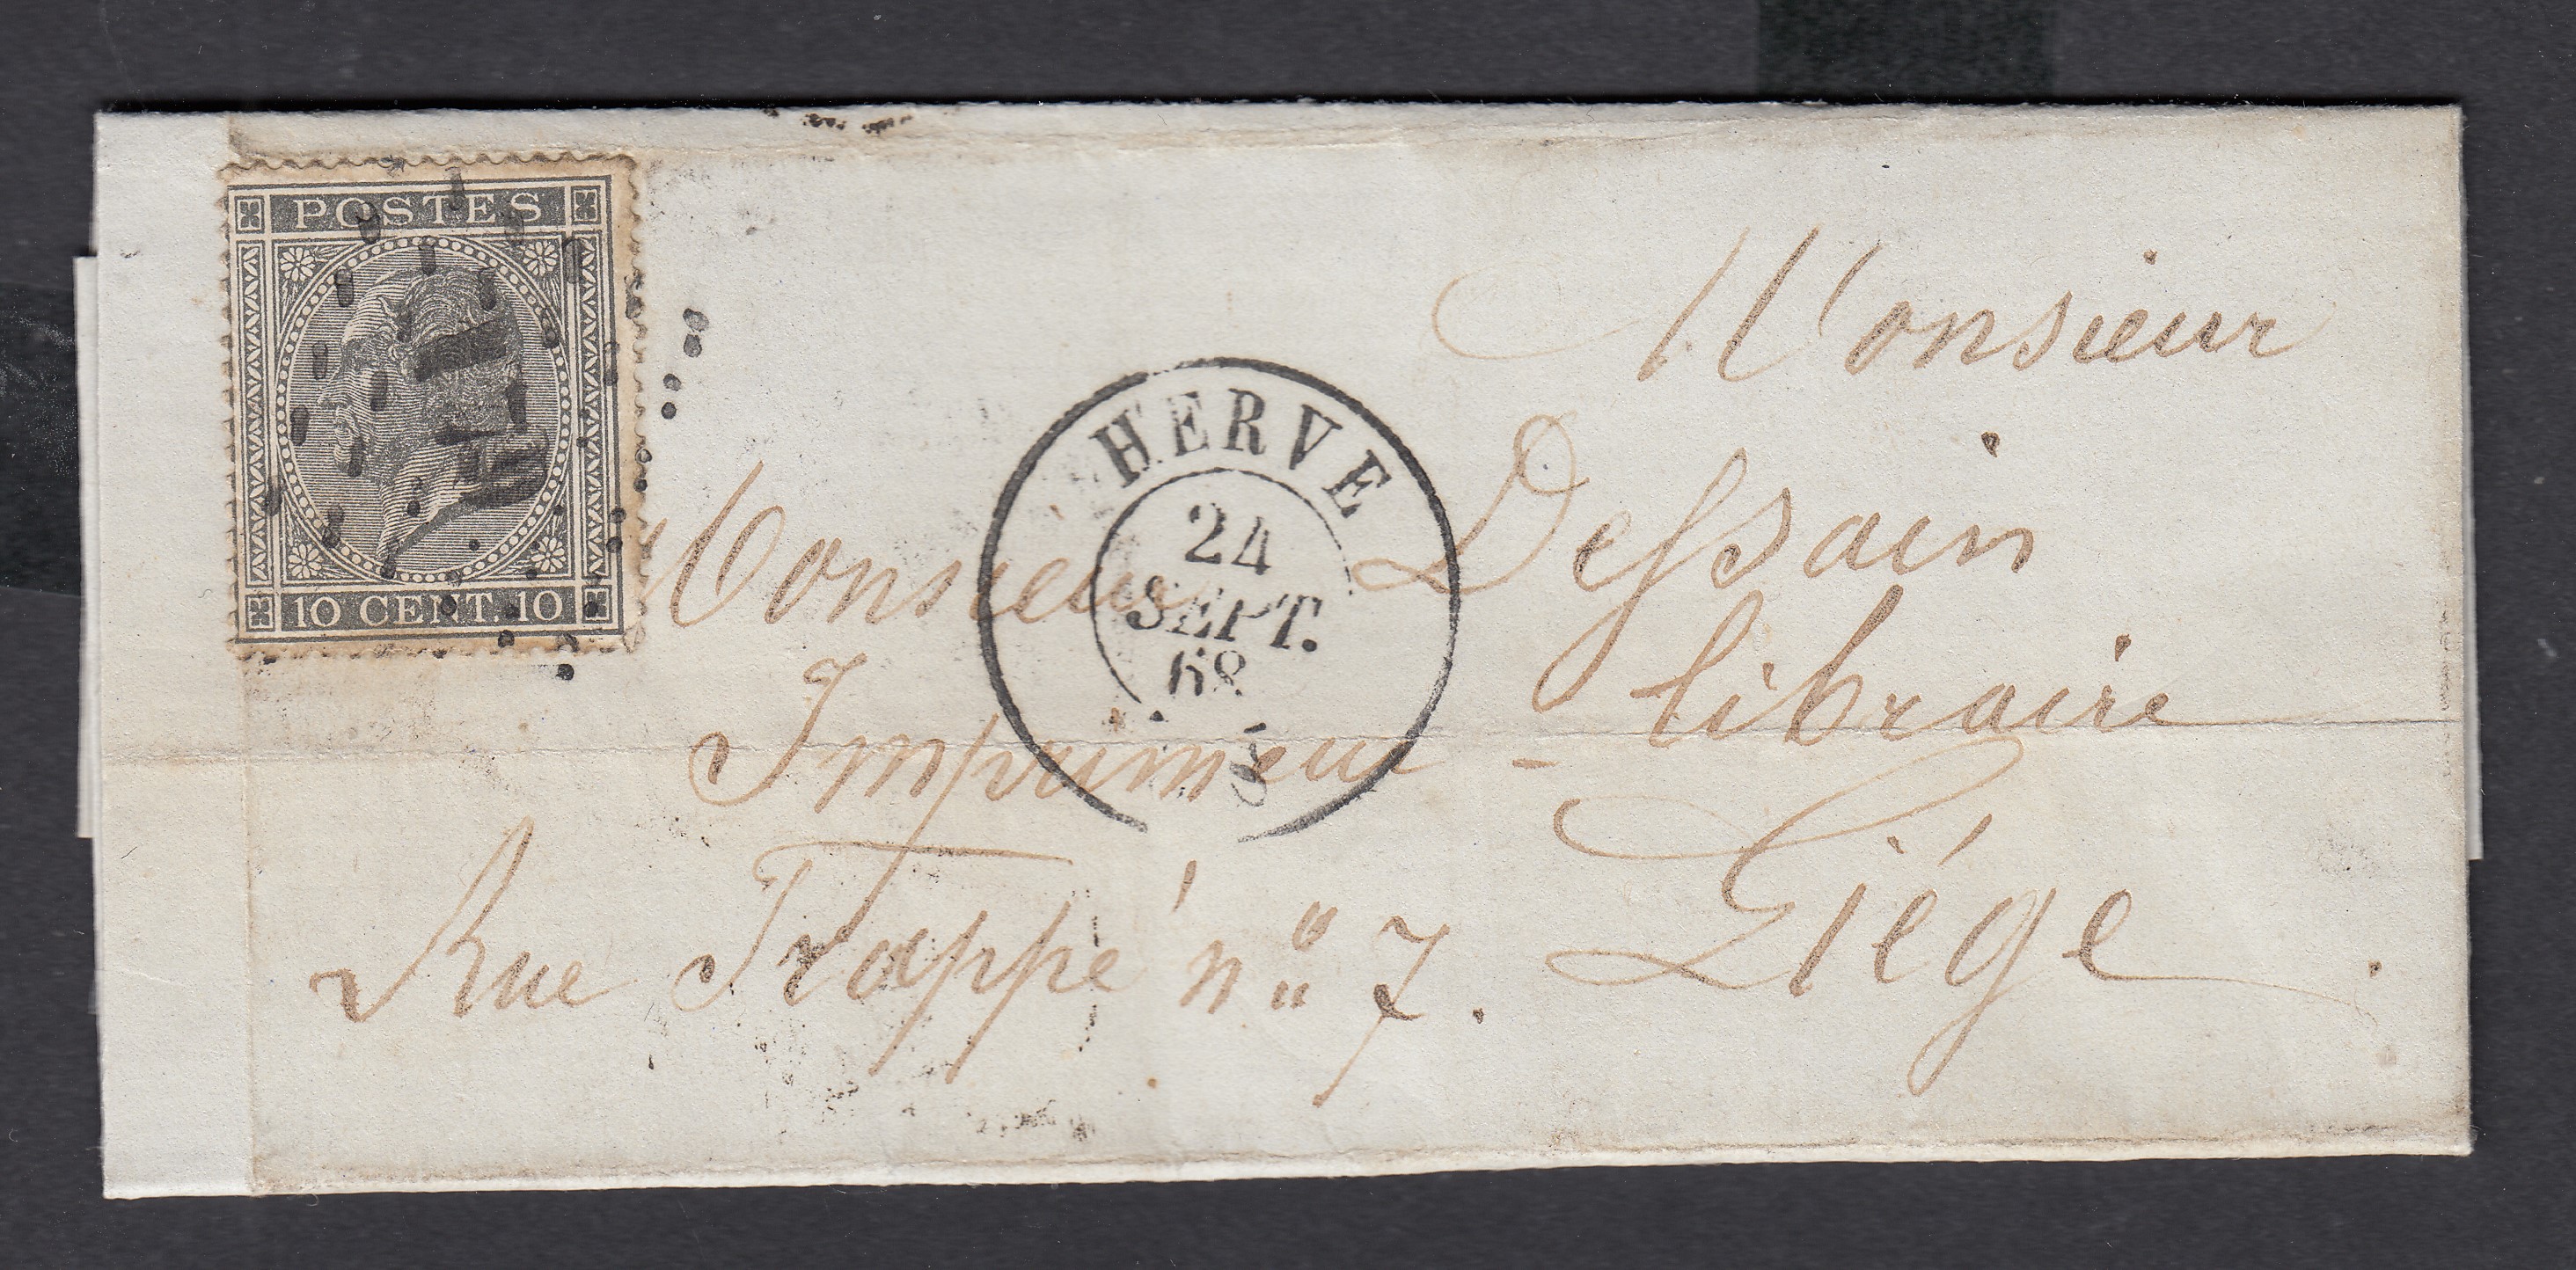 POSTES
10 CENT. 10
HERVE
24
SEPT.
68
Monsieur
Monsieur Dessain
Imprimeur - libraire
Rue Trappé n° 7. Liége.